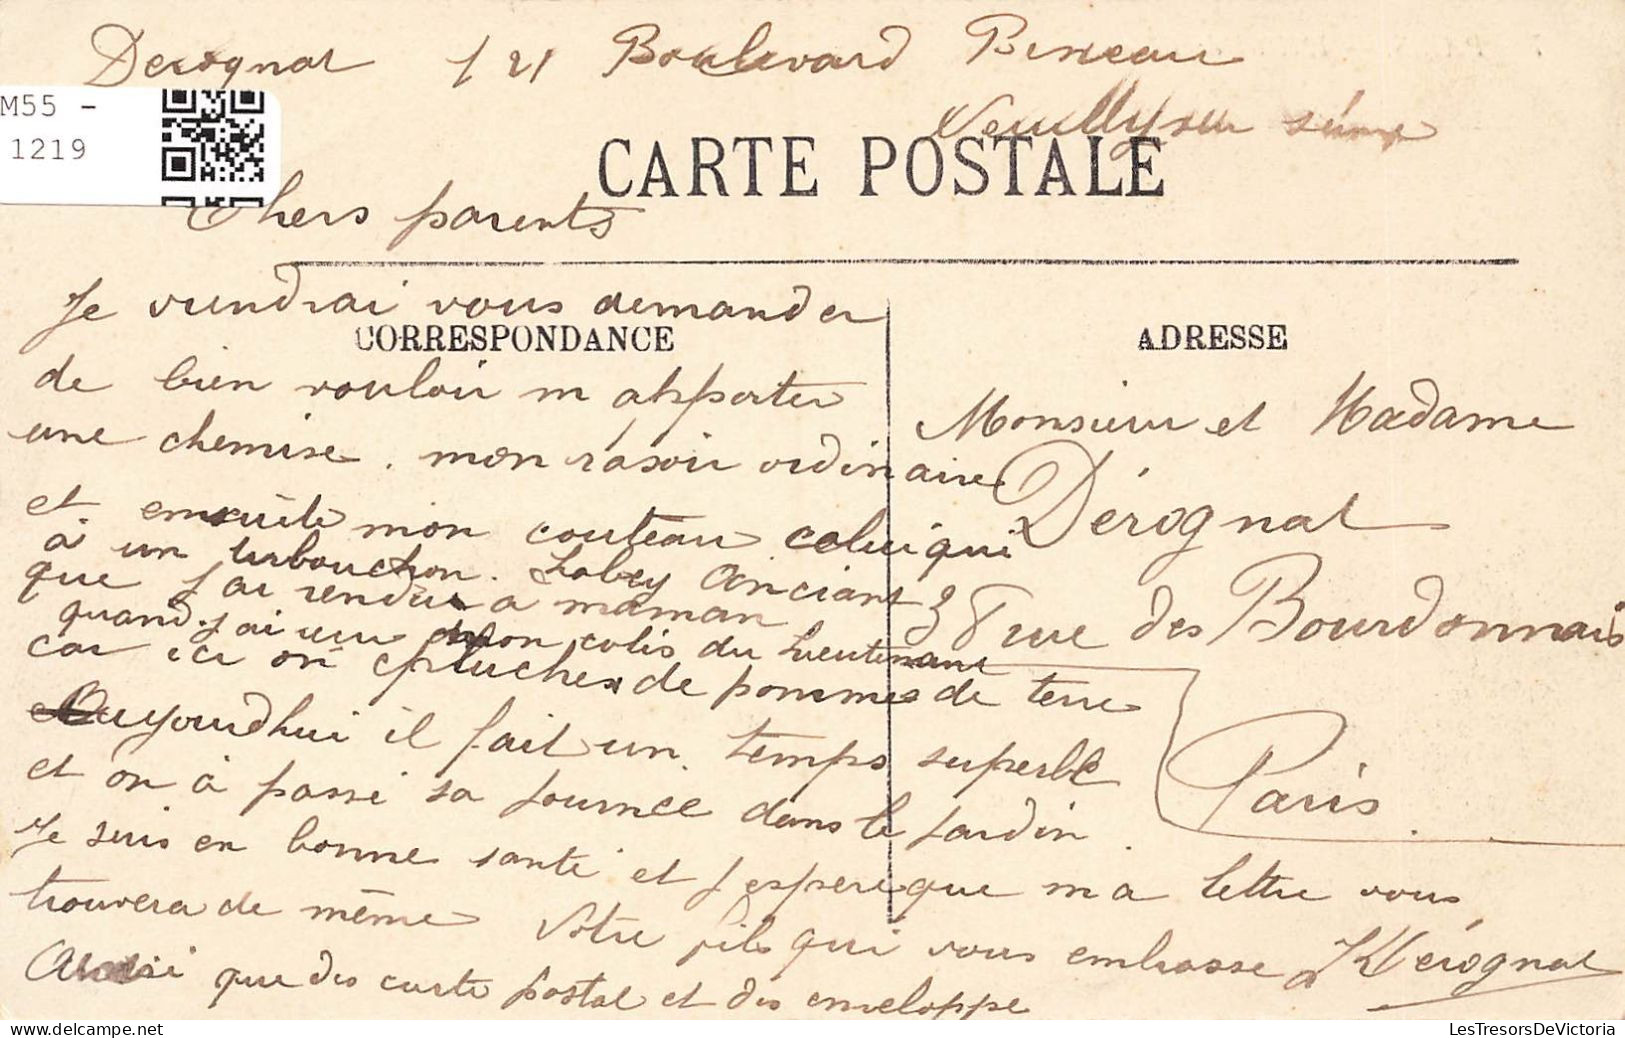 Derognat 121 Boulevard Bineau
Neuilly sur seine
M55 -
1219
CARTE POSTALE
Chers parents
Je viendrai vous demander
CORRESPONDANCE
de bien vouloir m apporter
une chemise. mon rasoir ordinaire
et ensuite mon couteau celui qui
à un tirbouchon. ancient
que j'ai rendu a maman
quand j'ai eu mon colis du Lieutenant
car ici on épluches de pommes de terre
Aujourdhui il fait un temps superbe
et on à passé sa journee dans le jardin
Je suis en bonne santé et j espere que ma lettre vous
trouvera de même Votre fils qui vous embrasse Derognat
Aussi que des carte postal et des enveloppe
ADRESSE
Monsieur et Madame
Dérognat
38 rue des Bourdonnais
Paris
LesTresorsDeVictoria
www.delcampe.net